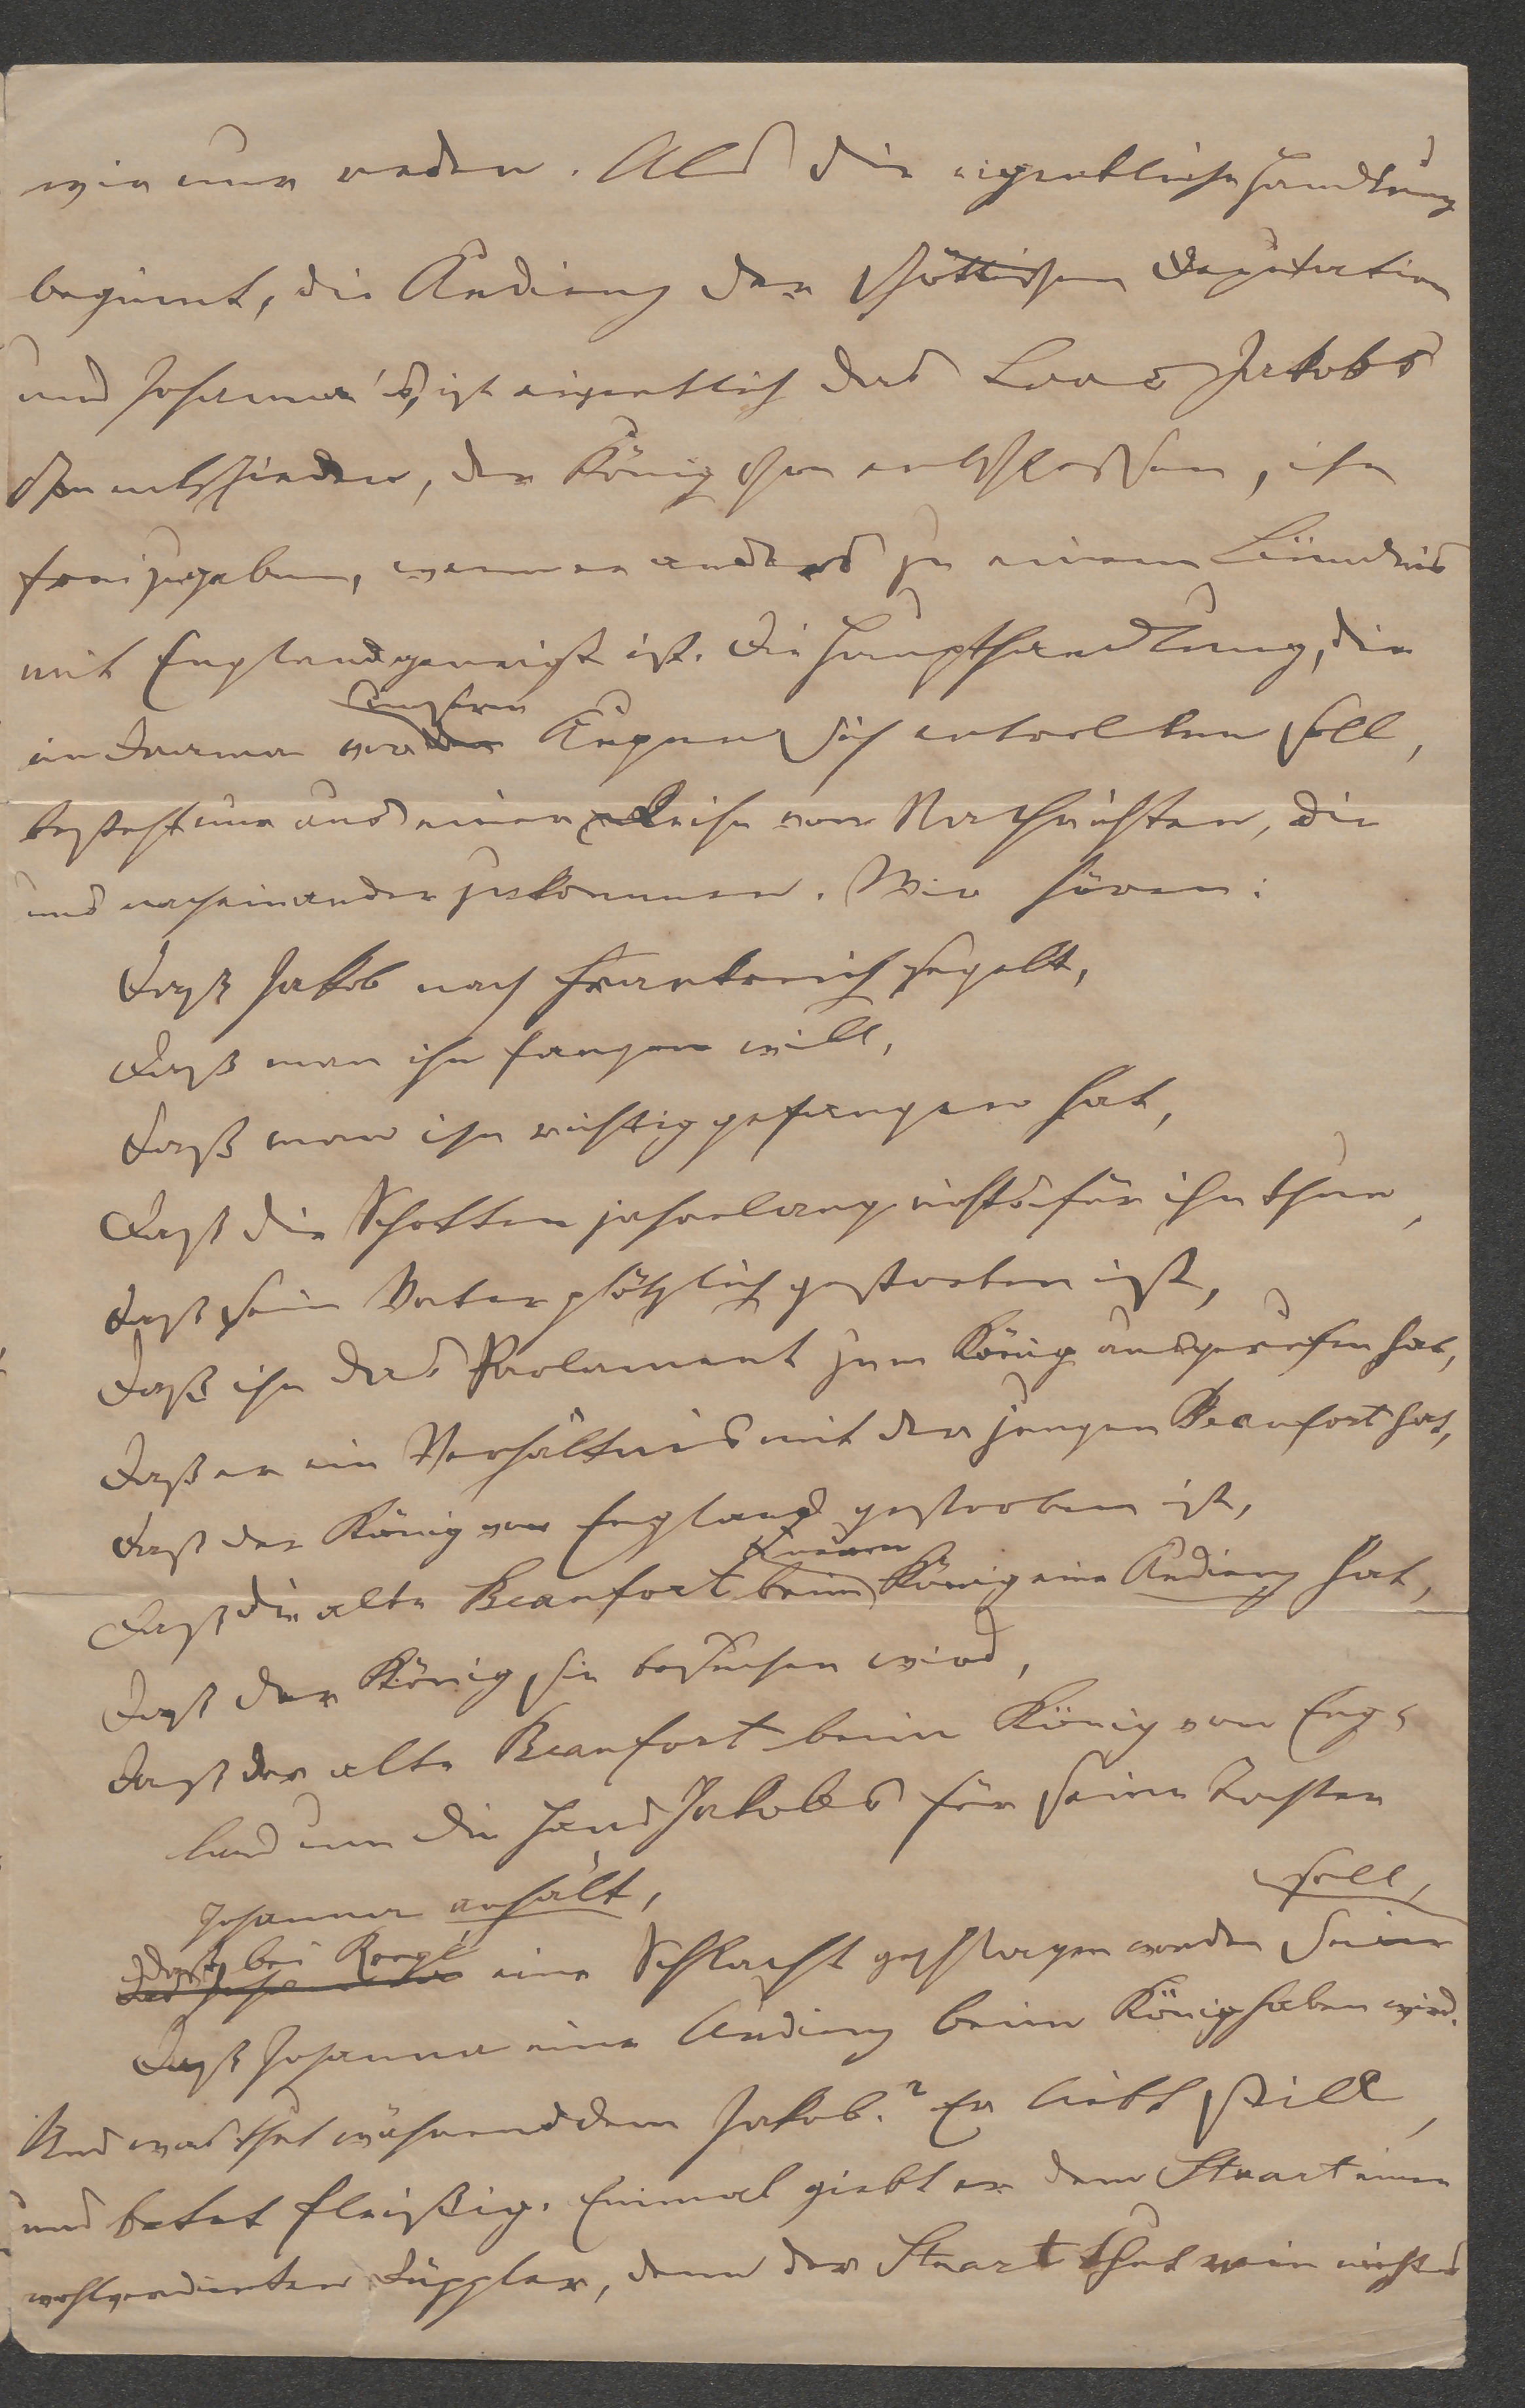 wir nur reden. Als die eigentliche Handlung
beginnt, die Audienz der schottischen Deputation
und Johanna's, ist eigentlich das Loos Jakobs
schon entschieden, der König schon entschlossen, ihn
freizugeben, wenn er anders zu einem Bündnis
mit England geneigt ist. Die Haupthandlung, die
im Drama vor unseren Augen sich entwickeln soll,
besteht nur aus einer Reihe von Nachrichten, die
uns nacheinander zukommen. Wir hören:
Daß Jakob nach Frankreich segelt,
Daß man ihn fangen will,
Daß man ihn richtig gefangen hat,
Daß die Schotten jahrelang nichts für ihn thun,
Daß sein Vater plötzlich gestorben ist,
Daß ihn das Parlament zum König ausgerufen hat,
Daß er ein Verhältnis mit der jungen Beaufort hat,
Daß der König von England gestorben ist,
Daß die alte Beaufort beim neuen König eine Audienz hat,
Daß der König sie besuchen wird,
Daß der alte Beaufort beim König von Eng-
land um die Hand Jakobs für seine Tochter
Johanna anhält,
Daß bei eine Schlacht geschlagen worden sein soll,
Daß Johanna eine Audienz beim König haben wird.
Und was thut währenddem Jakob? Er liebt still,
und betet fleißig. Einmal giebt er dem Stuart einen
wohlverdienten, denn der Stuart thut nichts